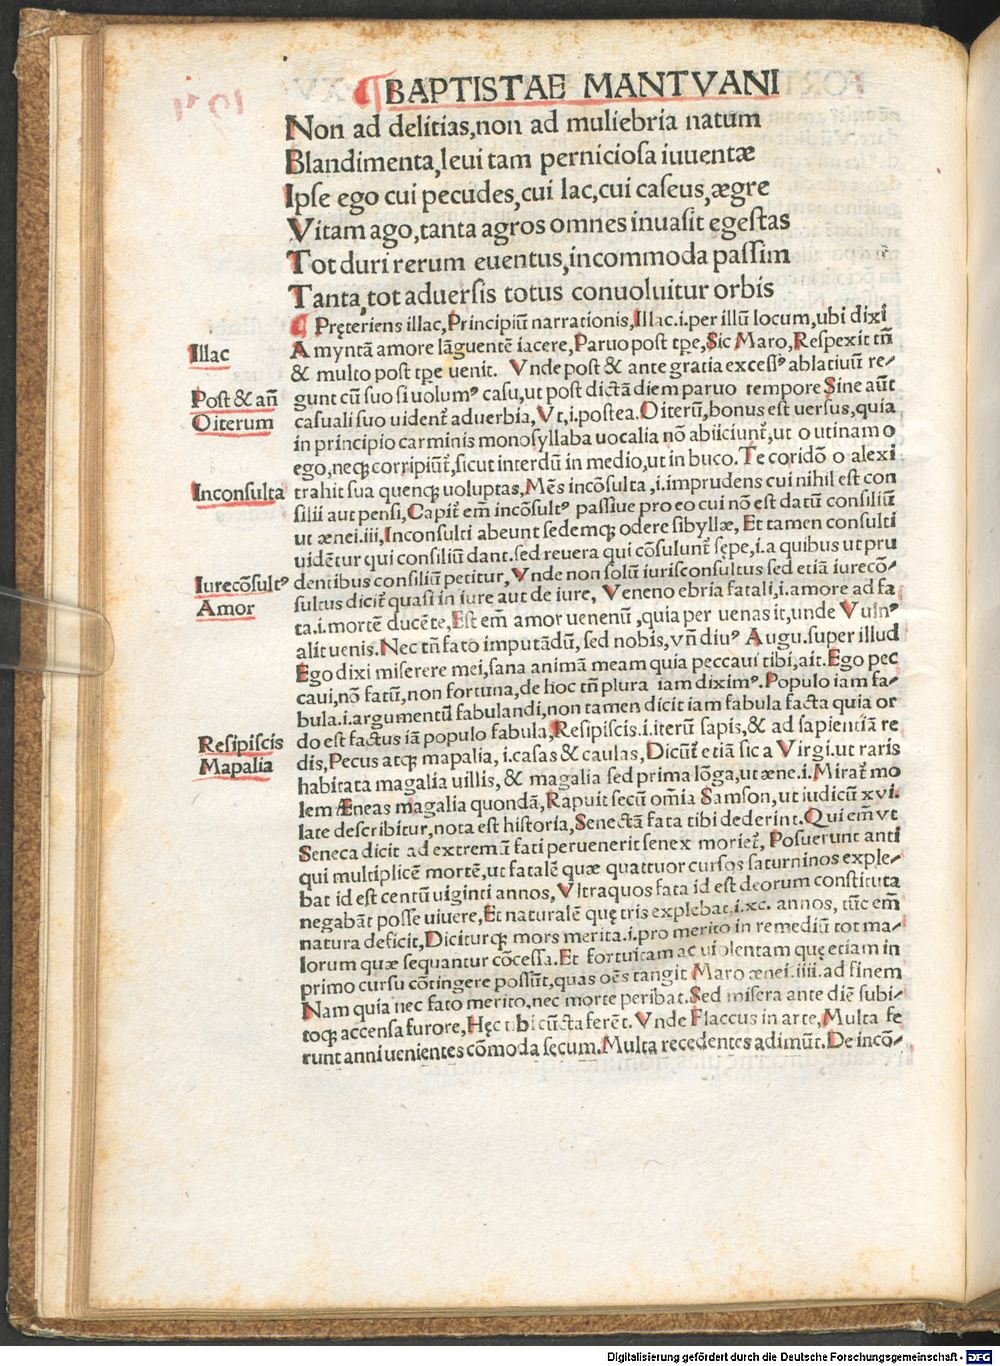 BAPTISTAE MANTVANI
Non ad delitias,non ad muliebria natum
Blandimenta,leui tam perniciosa iuuentæ
Ipse ego cui pecudes,cui lac,cui caseus,ægre
Vitam ago,tanta agros omnes inuasit egestas
Tot duri rerum euentus,incommoda passim
Tanta,tot aduersis totus conuoluitur orbis
Pręteriens illac,Principiũ narrationis,Illac.i.per illũ locum,ubi dixi
Illac
Amyntã amore lãguentẽ iacere,Paruo post tꝑe,Sic Maro,Respexit tñ
& multo post tꝑe uenit. Vnde post & ante gratia excessꝰ ablatiuũ re-
Post & añ
gunt cũ suo si uolumꝰ casu,ut post dictã diem paruo tempore Sine aũt
Oiterum
casuali suo uident᷑ aduerbia,Vt,i.postea.Oiterũ,bonus est uersus,quia
in principio carminis monosyllaba uocalia nõ abiiciunt᷑,ut o utinam o
ego,neqꝫ corripiũt᷑,sicut interdũ in medio,ut in buco.Te coridõ o alexi
Inconsulta
trahit sua quenqꝫ uoluptas,Mẽs incõsulta,.i.imprudens cui nihil est con
silii aut pensi,Capit᷑ em̃ incõsultꝰ passiue pro eo cui nõ est datũ consiliũ
ut ænei.iii,Inconsulti abeunt sedemqꝫ odere sibyllæ,Et tamen consulti
uidẽtur qui consiliũ dant.sed reuera qui cõsulunt᷑ sępe,i.a quibus ut pru
Iurecõsultꝰ
dentibus consiliũ petitur,Vnde non solũ iurisconsultus sed etiã iurecõ-
Amor
sultus dicit᷑ quasi in iure aut de iure, Veneno ebria fatali,i.amore ad fa
ta.i.mortẽ ducẽte,Est em̃ amor uenenũ,quia per uenas it,unde Vulnꝰ
alit uenis.Nec tñ fato imputãdũ,sed nobis,vñ diuꝰ Augu.super illud
Ego dixi miserere mei,sana animã meam quia peccaui tibi,ait.Ego pec
caui,nõ fatũ,non fortuna,de hoc tñ plura iam diximꝰ.Populo iam fa-
bula.i.argumentũ fabulandi,non tamen dicit iam fabula facta quia or
Resipiscis
do est factus iã populo fabula,Resipiscis.i.iterũ sapis,& ad sapientiã re
Mapalia
dis,Pecus atqꝫ mapalia, i.casas & caulas,Dicũt᷑ etiã sic a Virgi.ut raris
habitata magalia uillis, & magalia sed prima lõga,ut æne.i.Mirat᷑ mo
lem Æneas magalia quondã,Rapuit secũ om̃ia Samson,ut iudicũ xvi.
late describitur,nota est historia,Senectã fata tibi dederint.Qui em̃ vt
Seneca dicit ad extremã fati peruenerit senex moriet᷑, Posuerunt anti
qui multiplicẽ mortẽ,ut fatalẽ quæ quattuor cursos saturninos exple-
bat id est centũ uiginti annos,Vltraquos fata id est deorum constituta
negabãt posse uiuere,Et naturalẽ quę tris explebat,i.xc. annos, tũc em̃
natura deficit,Diciturqꝫ mors merita.i.pro merito in remediũ tot ma-
lorum quæ sequantur cõcessa.Et fortuitam ac uiolentam quę etiam in
primo cursu cõtingere possũt,quas oẽs tangit Maro ænei.iiii.ad finem
Nam quia nec fato merito,nec morte peribat.Sed misera ante diẽ subi-
toqꝫ accensa furore,Hęc tibi cũcta ferẽt.Vnde Flaccus in arte,Multa fe
runt anni uenientes cõmoda secum.Multa recedentes adimũt.De incõ-
Digitalisierung gefördert durch die Deutsche Forschungsgemeinschaft - DFG